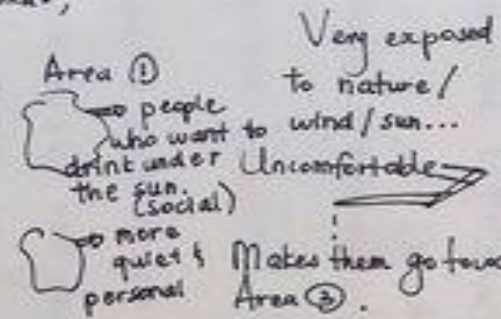 Area ①
people
who want to
drink under
the sun.
(social)
more
quiet &
personal
Very exposed
to nature/
wind/sun...
Uncomfortable
Makes them go
Area ③.